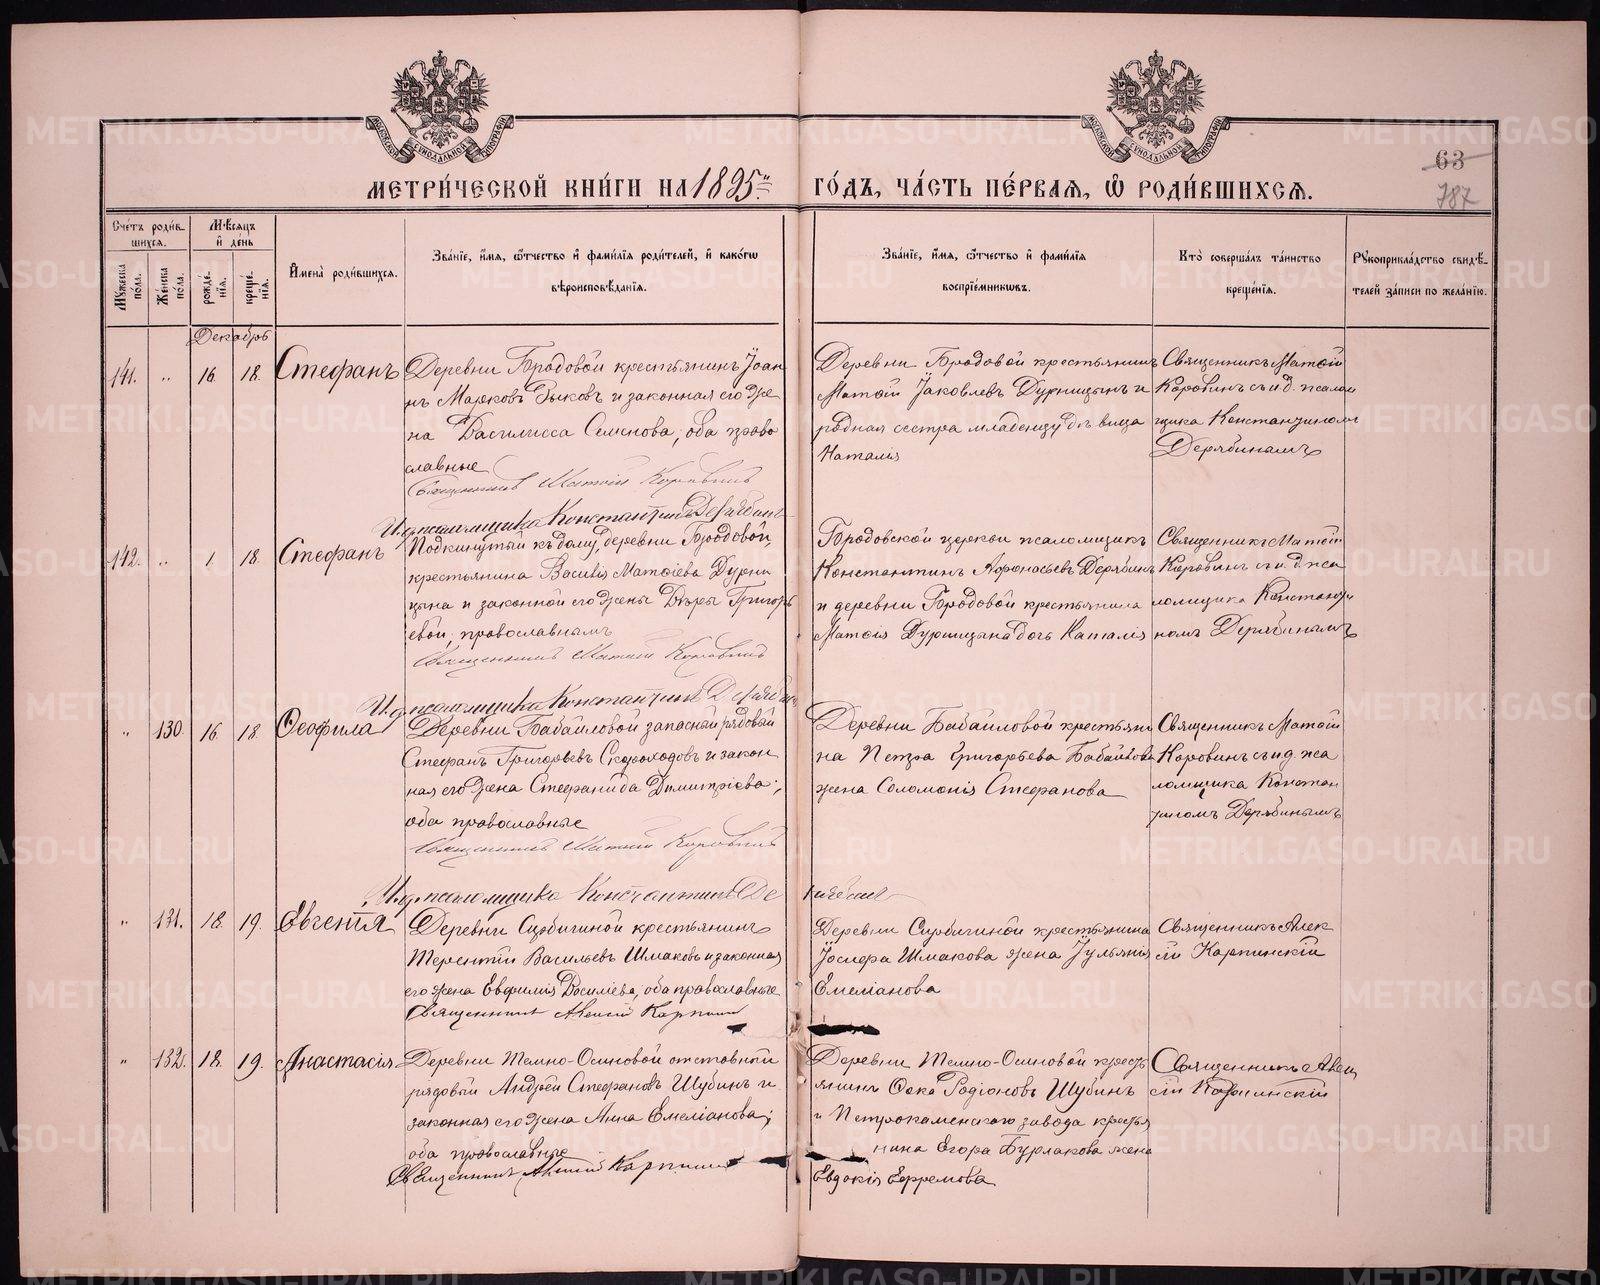 63
787
МЕТРИ́ЧЕСКОЙ КНИ́ГИ НА 1895 ГО́ДЪ, ЧА́СТЬ ПЕ́РВАЯ, Ѡ РОДИ́ВШИХСЯ.
Сче́тъ роди́вшихся.
Мѣ́сяцъ и де́нь
Му́жеска по́ла.
Же́нска по́ла.
рожде́нія.
креще́нія.
Имена̀ роди́вшихся.
Зва́ніе, и́мя, ѻ́тчество и фами́лія роди́телей, и како́гѡ
вѣроисповѣ́данія.
Зва́ніе, и́мя, ѻ́тчество и фами́лія
воспріе́мникѡвъ.
Кто̀ соверша́лъ та́инство
креще́нія.
Рукоприкла́дство свидѣ́-
телей за́писи по жела́нію.
Декабрь
141. „ 16. 18. Стефанъ
Деревни Бродовой крестьянинъ Іоан
нъ Марковъ Зыковъ и законная его же
на Василисса Семенова, оба право
славные
Священникъ Матѳій Коровинъ
И.д. псаломщика Константинъ Дерябинъ
Деревни Бродовой крестьянинъ
Матѳій Іаковлевъ Дурницынъ и
родная сестра младенцу дѣвица
Наталія
Священникъ Матѳій
Коровинъ съ и д. псалом
щика Константиномъ
Дерябинымъ
142. „ 1. 18. Стефанъ
Подкинутый къ дому, деревни Бродовой,
крестьянина Василія Матѳіева Дурни
цына и законной его жены Вѣры Григорь
евой, православнымъ
Священникъ Матѳій Коровинъ
И.д. псаломщика Константинъ Дерябинъ
Бродовской церкви псаломщикъ
Константинъ Аѳонасьевъ Дерябинъ
и деревни Бродовой крестьянина
Матѳія Дурницына дочь Наталія
Священникъ Матѳій
Коровинъ съ и д пса
ломщика Константи
номъ Дерябинымъ
„ 130. 16 18. Ѳеофила
Деревни Бабаиловой запасный рядовый
Стефанъ Григорьевъ Скороходовъ и закон
ная его жена Стефанида Димитріева;
оба православные
Священникъ Матѳій Коровинъ
И.д. псаломщика Константинъ Дерябинъ
Деревни Бабаиловой крестьяни
на Петра Григорьева Бабайлова
жена Соломонія Стефанова
Священникъ Матѳій
Коровинъ съ и д. пса
ломщика Констан
тиномъ Дерябинымъ
„ 131. 18. 19. Евгенія
Деревни Сербишной крестьянинъ
Терентій Васильевъ Шмаковъ и законная
его жена Евфимія Василіева, оба православные
Священникъ Алексій Карпинскій
Деревни Сербишной крестьянина
Іосифа Шмакова жена Іуліанія
Емеліанова
Священникъ Алек
сій Карпинскій
„ 132. 18. 19. Анастасія
Деревни Темно-Осиновой отставный
рядовой Андрей Стефановъ Шубинъ и
законная его жена Анна Емеліанова;
оба православные
Священникъ Алексій Карпинскій
Деревни Темно-Осиновой кресть
янинъ Фока Родіоновъ Шубинъ
и Петрокаменскаго завода кресть
янина Егора Бурлакова жена
Евдокія Ефремова
Священникъ Алек
сій Карпинскій
METRIKI.GASO-URAL.RU